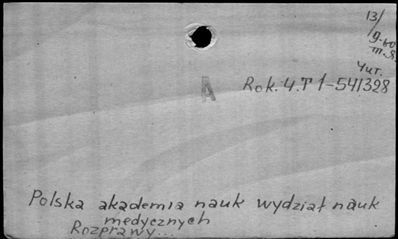 13/
Чит.
A
Rok. 4. T 1-541328
Polska akademia nauk wydział nauk
medycznych
Rozprawy...